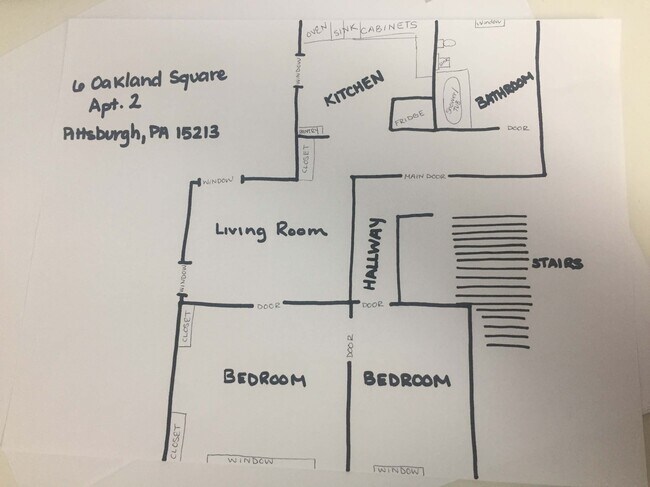 6 Oakland Square
Apt. 2
Pittsburgh, PA 15213
OVEN
SINK
CABINETS
WINDOW
WINDOW
KITCHEN
FRIDGE
BATHROOM
DOOR
CLOSET
WINDOW
MAIN DOOR
LIVING ROOM
HALLWAY
STAIRS
WINDOW
DOOR
DOOR
CLOSET
DOOR
BEDROOM
BEDROOM
CLOSET
WINDOW
WINDOW